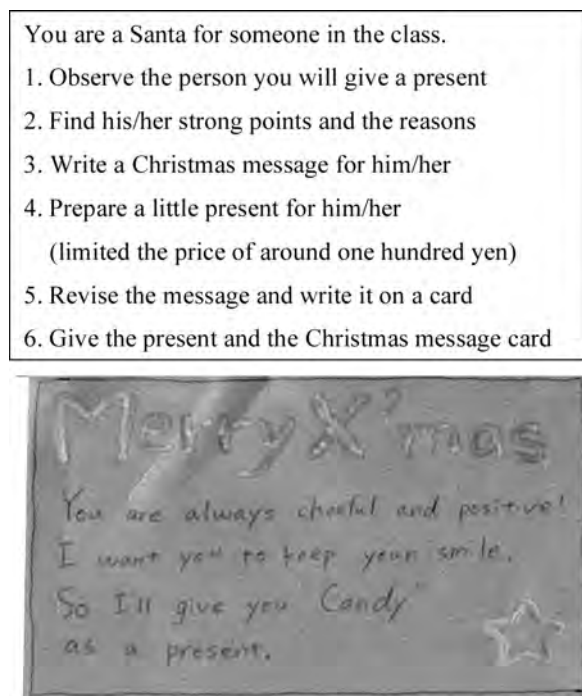 You are a Santa for someone in the class.
1. Observe the person you will give a present
2. Find his/her strong points and the reasons
3. Write a Christmas message for him/her
4. Prepare a little present for him/her
(limited the price of around one hundred yen)
5. Revise the message and write it on a card
6. Give the present and the Christmas message card
Merry X'mas
You are always cheeful and positive!
I want you to keep your smile.
So I'll give you "Candy"
as a present.